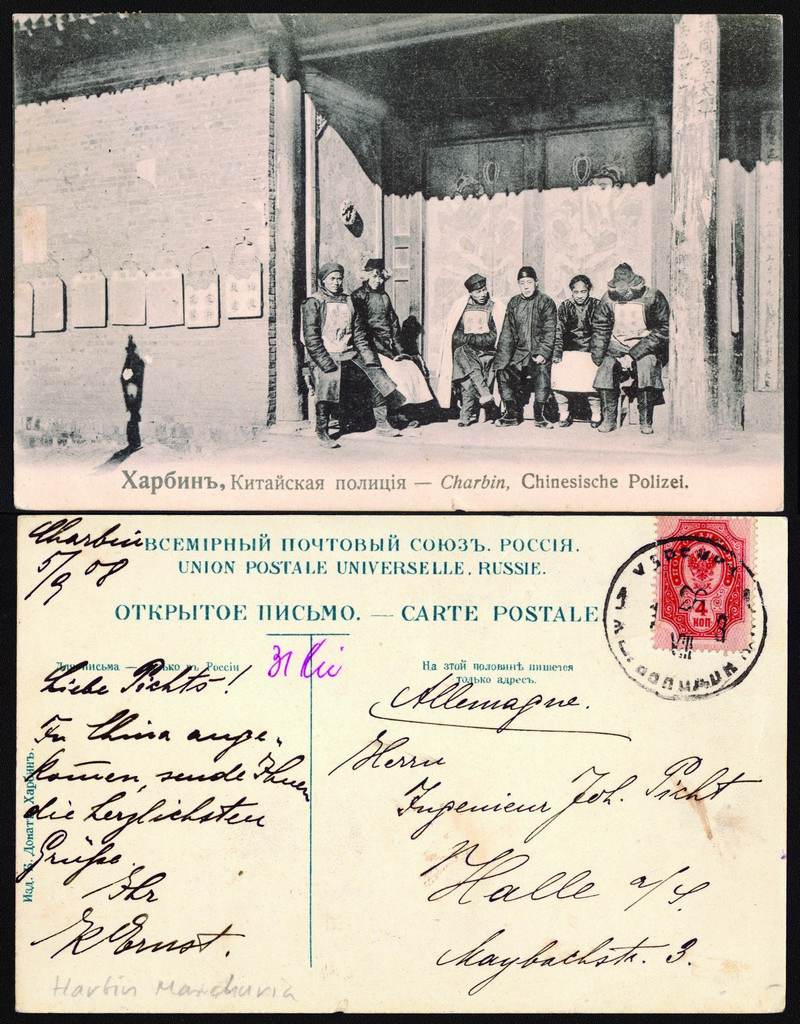 Харбинъ, Китайская полиція — Charbin, Chinesische Polizei.
Charbin
5/9 08
ВСЕМІРНЫЙ ПОЧТОВЫЙ СОЮЗЪ. РОССІЯ.
UNION POSTALE UNIVERSELLE. RUSSIE.
ОТКРЫТОЕ ПИСЬМО. — CARTE POSTALE
4
КОП
VIII
Для письма — только въ Россіи
На этой половинѣ пишется
только адресъ.
Liebe Pichts!
In China ange-
kommen, sende Ihnen
die herzlichsten
Grüße.
Ihr
Ernst.
Allemagne.
Herrn
Ingenieur Joh. Picht
Halle a/S.
Maybachstr. 3.
Изд. Донат Харбинъ.
Harbin Manchuria